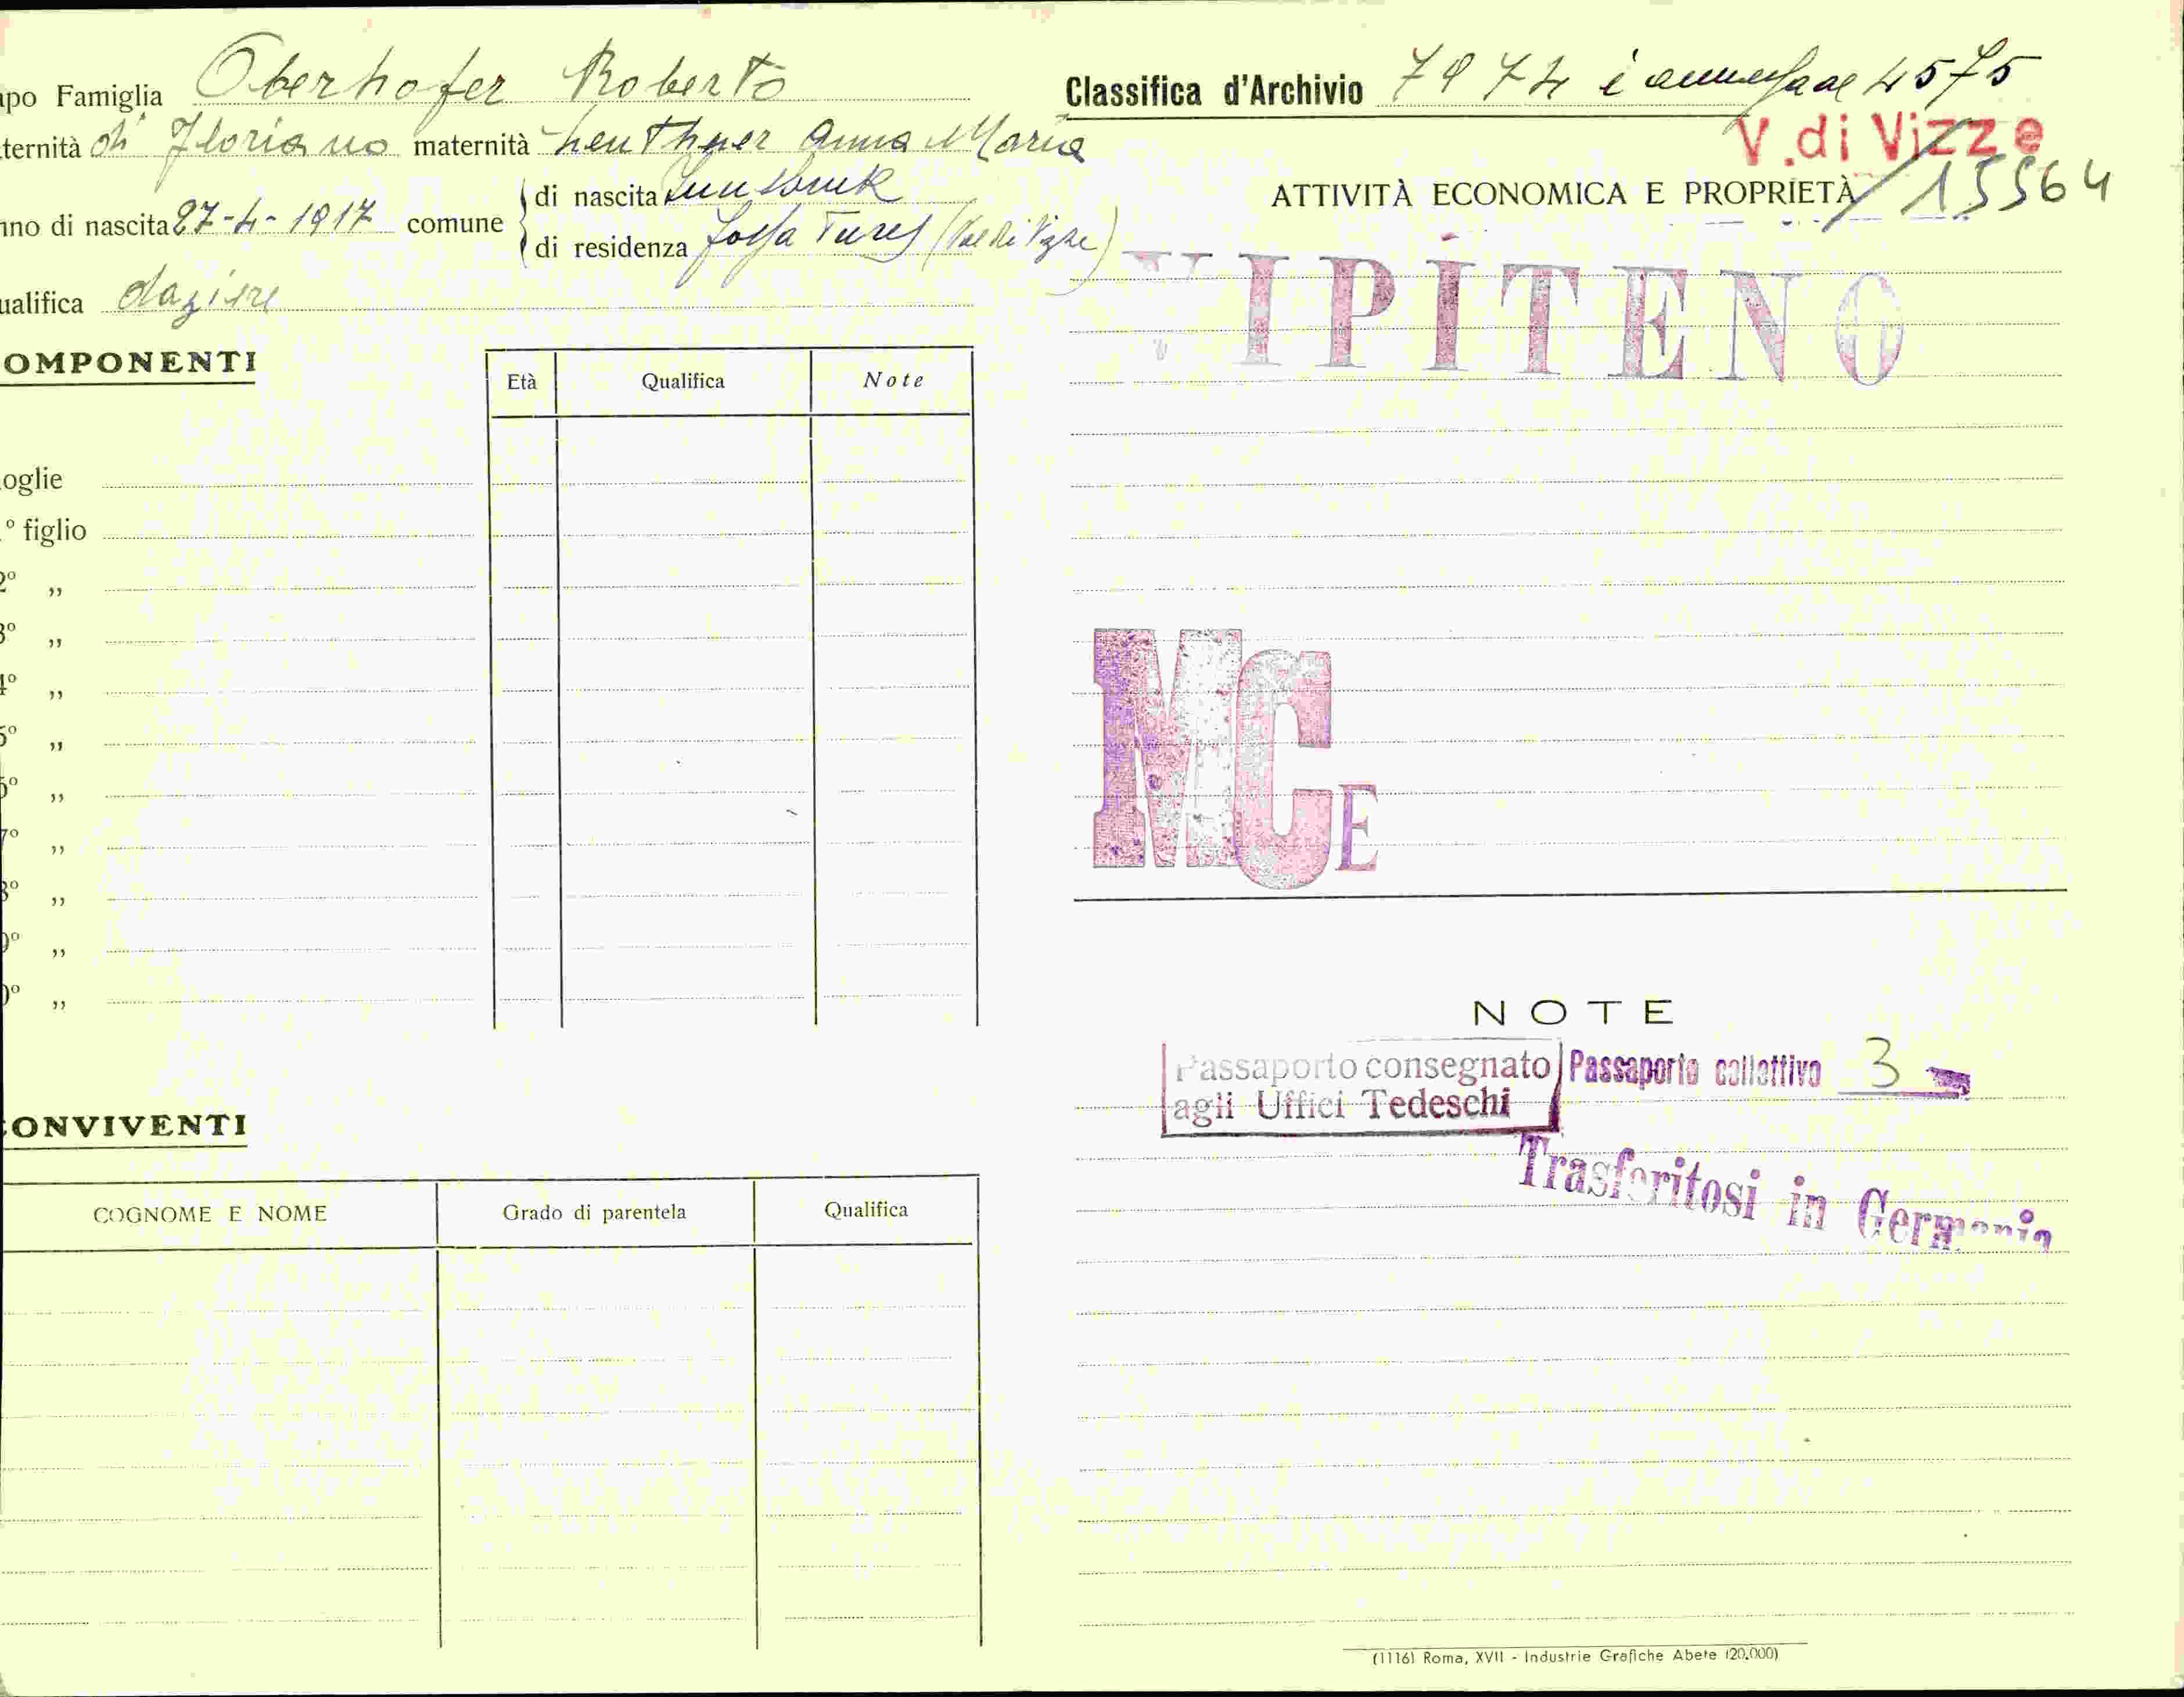 apo Famiglia Oberhofer Roberto
ternità di Floriano maternità Leuthner Anna Maria
nno di nascita 27-4-1917 comune
di nascita Innsbruk
di residenza Fossa Tures (Val di Vizze)
ualifica daziere
OMPONENTI
Età Qualifica Note
oglie
° figlio
2° ,,
3° ,,
4° ,,
5° ,,
6° ,,
7° ,,
8° ,,
9° ,,
0° ,,
CONVIVENTI
COGNOME E NOME Grado di parentela Qualifica
Classifica d'Archivio 7974 è annessa al 4575
V. di Vizze
ATTIVITÀ ECONOMICA E PROPRIETÀ / 15564
VIPITENO
MCE
NOTE
Passaporto consegnato
agli Uffici Tedeschi
Passaporto collettivo 3
Trasferitosi in Germania
(1116) Roma, XVII - Industrie Grafiche Abete (20.000)